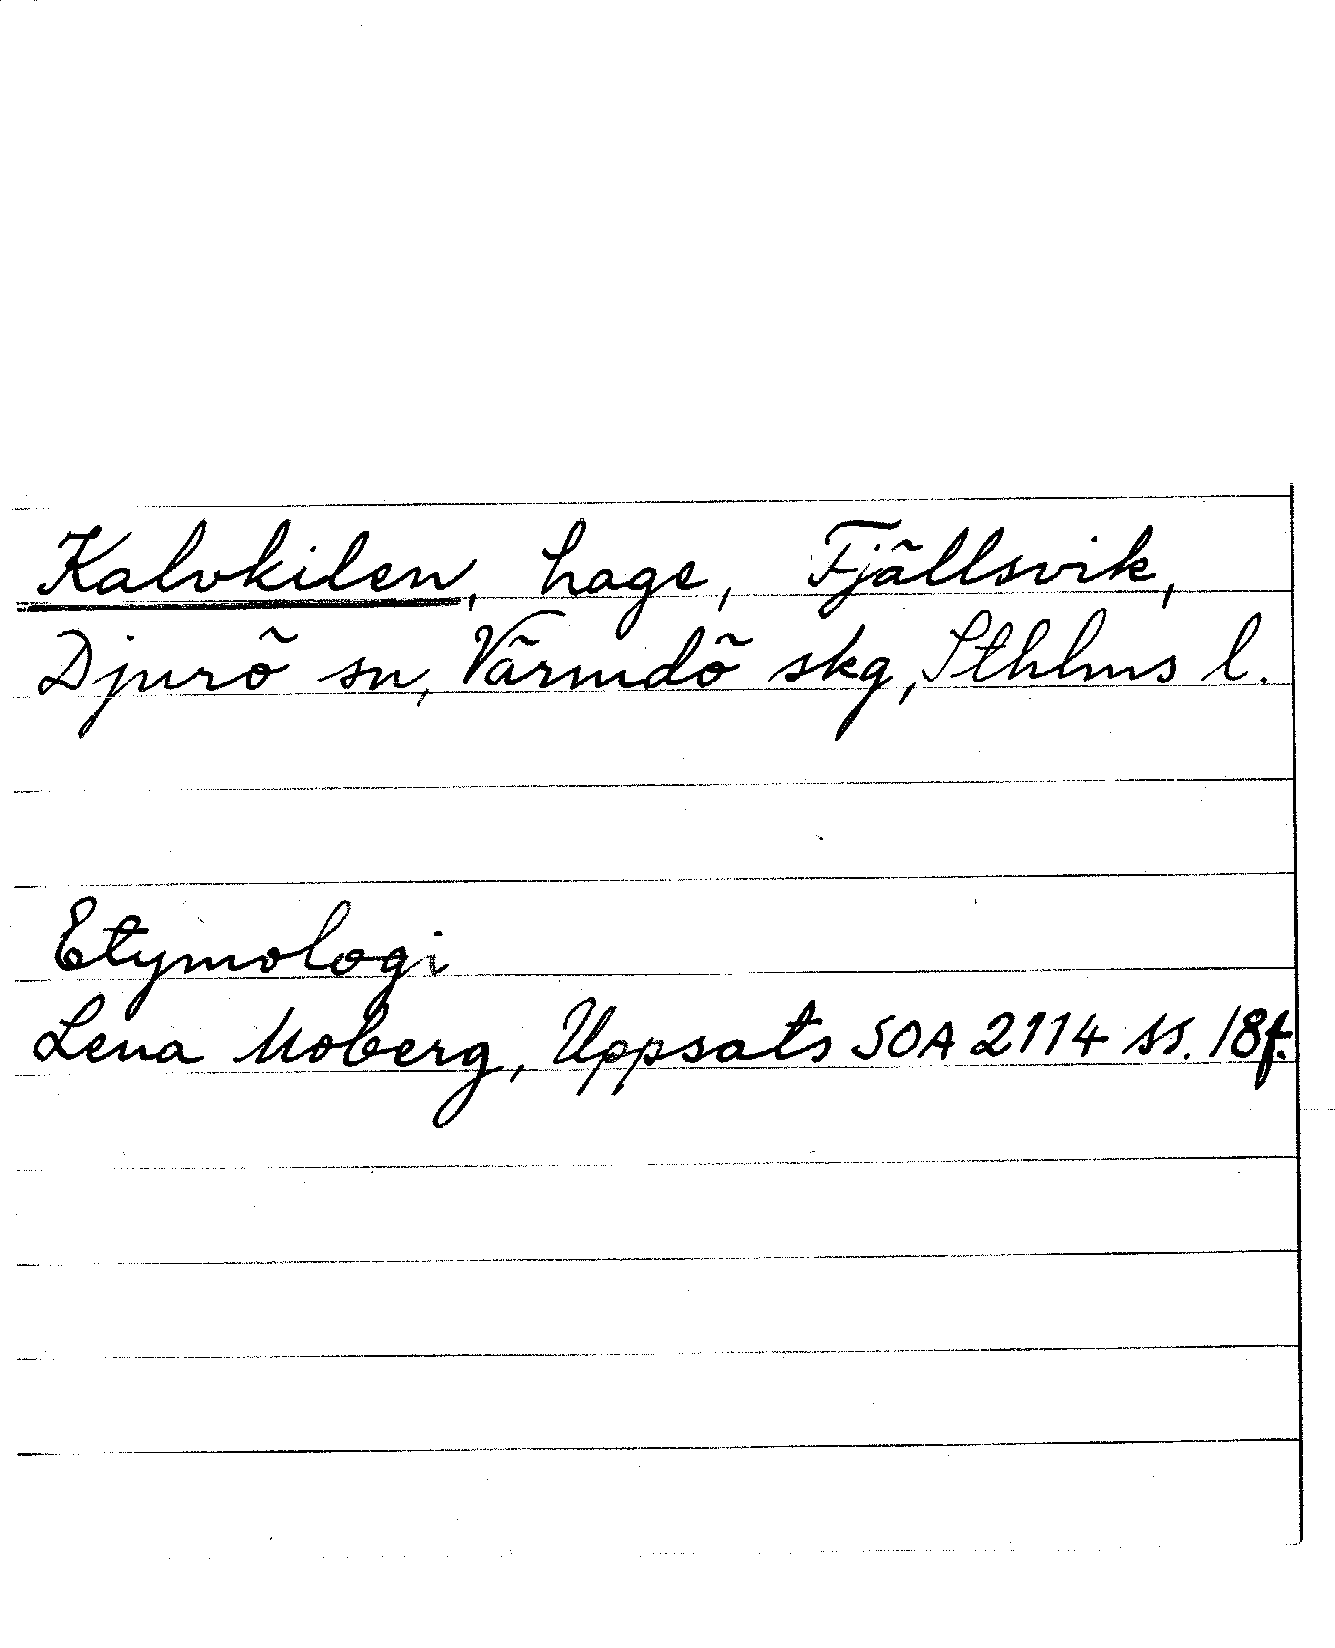 Kalvkilen, hage, Fjällsvik,
Djurö sn, Värmdö skg, Sthlms l.
Etymologi
Lena Moberg, Uppsats SOA 2114 ss. 18f.